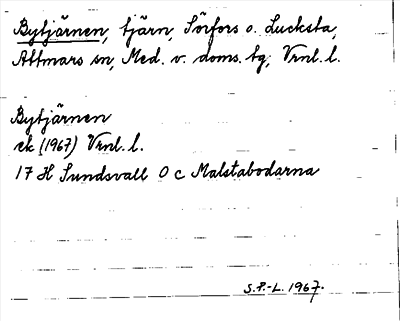 Bytjärnen, tjärn, Sörfors o. Lucksta,
Attmars sn, Med. v. doms. tg, Vrnl. l.
Bytjärnen
ek (1967) Vrnl. l.
17 H Sundsvall 0 c Malstabodarna
S.P.-L. 1967.